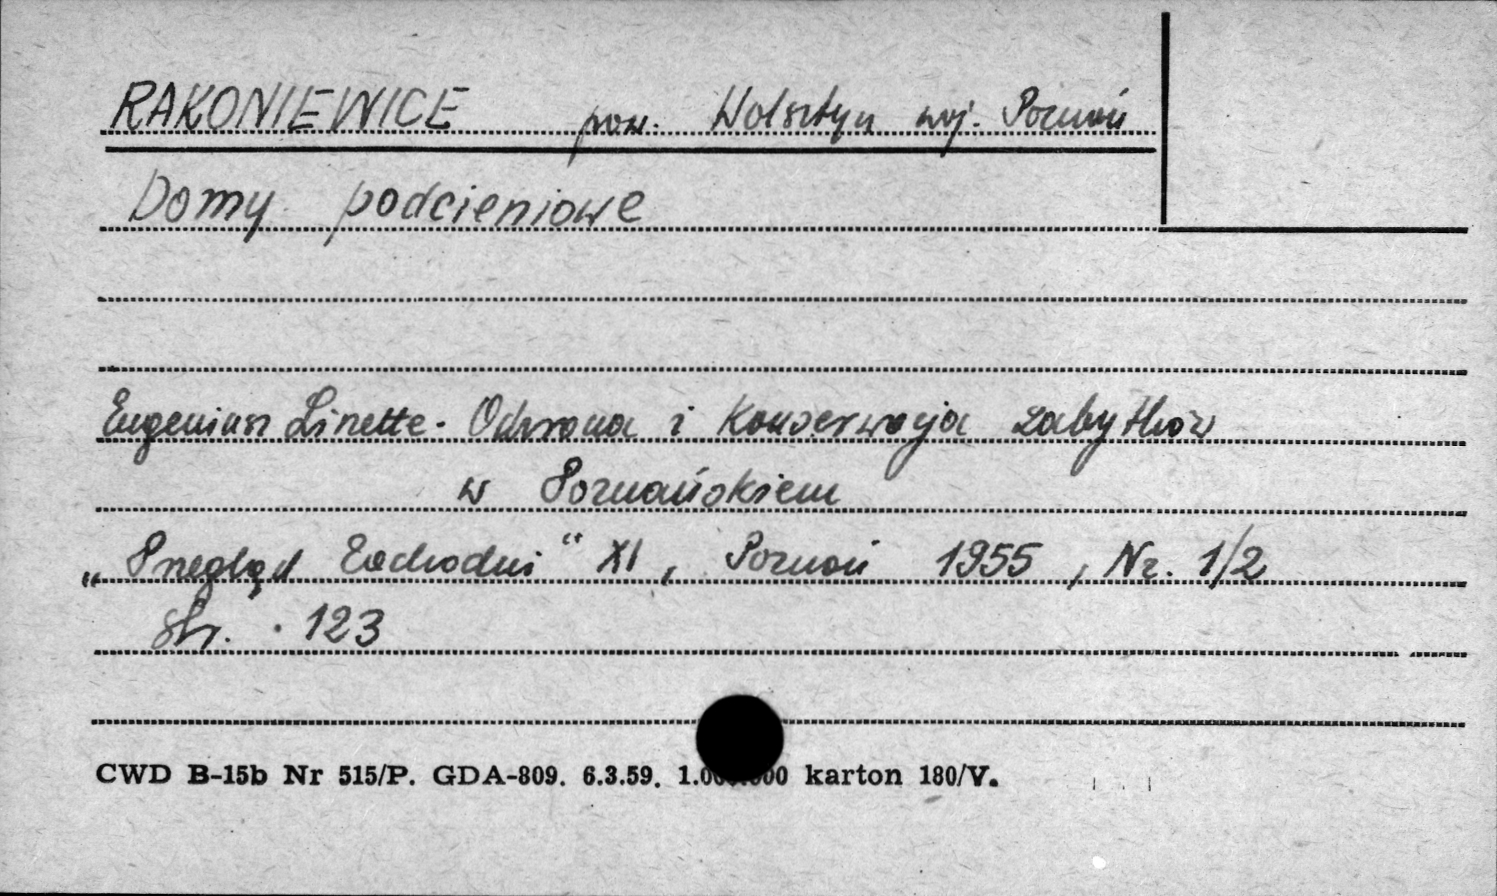 RAKONIEWICE pow. Wolsztyn woj. Poznań
Domy podcieniowe
Eugeniusz Linette. Ochrona i konserwacja zabytków
w Poznańskiem
„Przegląd Zachodni" XI, Poznań 1955, Nr. 1/2
str. 123
CWD B-15b Nr 515/P. GDA-809. 6.3.59. 1.000.000 karton 180/V.